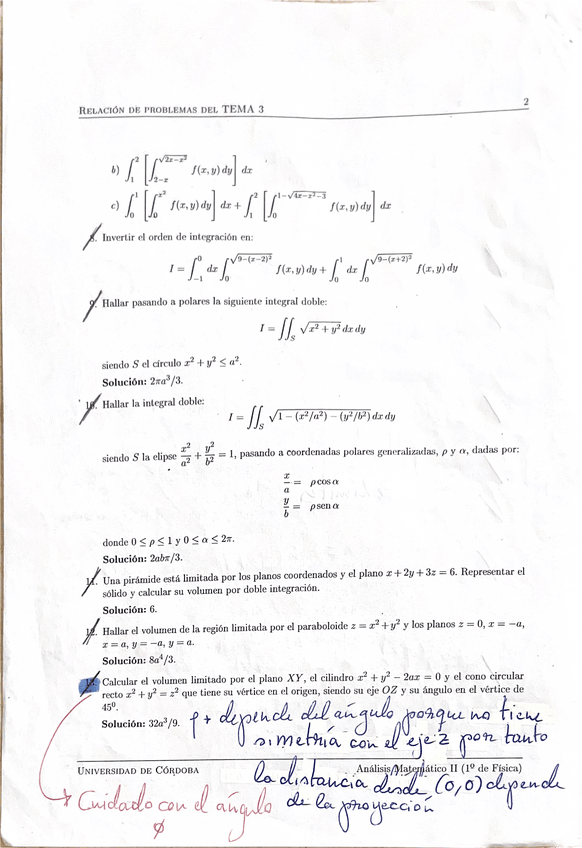 RELACIÓN DE PROBLEMAS DEL TEMA 3 2
b) ∫_1^2 [∫_{2−x}^{√(2x−x²)} f(x, y) dy] dx
c) ∫_0^1 [∫_0^{x²} f(x, y) dy] dx + ∫_1^2 [∫_0^{1−√(4x−x²−3)} f(x, y) dy] dx
8. Invertir el orden de integración en:
I = ∫_{−1}^0 dx ∫_0^{√(9−(x−2)²)} f(x, y) dy + ∫_0^1 dx ∫_0^{√(9−(x+2)²)} f(x, y) dy
9. Hallar pasando a polares la siguiente integral doble:
I = ∬_S √(x² + y²) dx dy
siendo S el círculo x² + y² ≤ a².
Solución: 2πa³/3.
10. Hallar la integral doble:
I = ∬_S √(1 − (x²/a²) − (y²/b²)) dx dy
siendo S la elipse x²/a² + y²/b² = 1, pasando a coordenadas polares generalizadas, ρ y α, dadas por:
x/a = ρ cos α
y/b = ρ sen α
donde 0 ≤ ρ ≤ 1 y 0 ≤ α ≤ 2π.
Solución: 2abπ/3.
11. Una pirámide está limitada por los planos coordenados y el plano x + 2y + 3z = 6. Representar el
sólido y calcular su volumen por doble integración.
Solución: 6.
12. Hallar el volumen de la región limitada por el paraboloide z = x² + y² y los planos z = 0, x = −a,
x = a, y = −a, y = a.
Solución: 8a⁴/3.
13. Calcular el volumen limitado por el plano XY, el cilindro x² + y² − 2ax = 0 y el cono circular
recto x² + y² = z² que tiene su vértice en el origen, siendo su eje OZ y su ángulo en el vértice de
45⁰.
Solución: 32a³/9.
ρ + depende del ángulo porque no tiene
simetría con el eje z por tanto
UNIVERSIDAD DE CÓRDOBA Análisis Matemático II (1º de Física)
la distancia desde (0,0) depende
de la proyección
Cuidado con el ángulo
∅